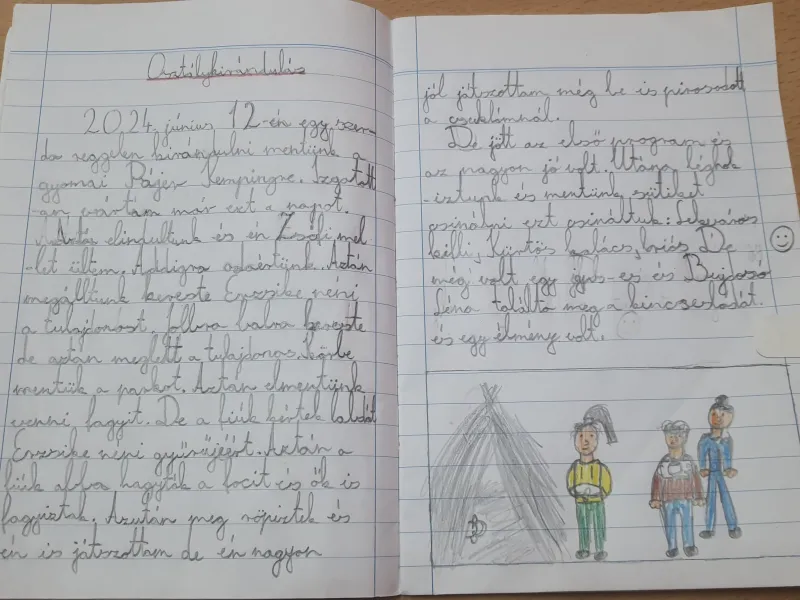 Osztálykirándulás
2024. június 12-én egy szer-
da reggelen kirándulni mentünk a
gyomai Pájer Kempingne. Izgatott
-an vártam már ezt a napot.
Aztán elindultunk és én Zsófi mel
-let ültem. Addigra odaértünk. Aztán
megálltunk kereste Erzsike néni
a tulajdonost. Jobbra balra kereste
de aztán meglett a tulajdonos. Körbe
mentük a parkot. Aztán elmentünk
venni fagyit. De a fiúk kértek labdát
Erzsike néni gyűrűjéért. Aztán a
fiúk abba hagyták a focit és ők is
fagyiztak. Azután meg röpiztek és
én is játszottam de én nagyon
jól játszottam még be is pirosodott
a csuklómnál.
De jött az első program és
az nagyon jó volt. Utána léghok
-iztunk és mentünk sütiket
csinálni ezt csináltuk: Lekváros
kifli, kürtös kalács, kóiós De
még volt egy gps-es és Bujcsó
Léna találta meg a kincsesládát.
és egy élmény volt.